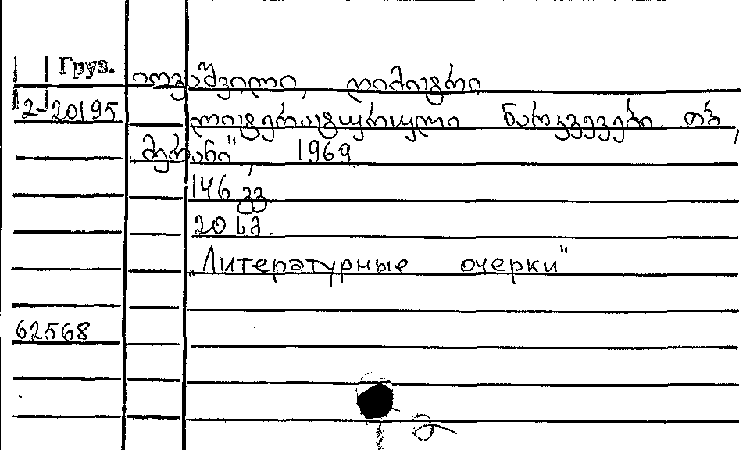 Груз.
იოვაშვილი, დიმიტრი
2-20195
ლიტერატურული ნარკვევები. თბ.,
მერანი", 1969
146 გვ.
20 კპ.
Литературные очерки"
62568